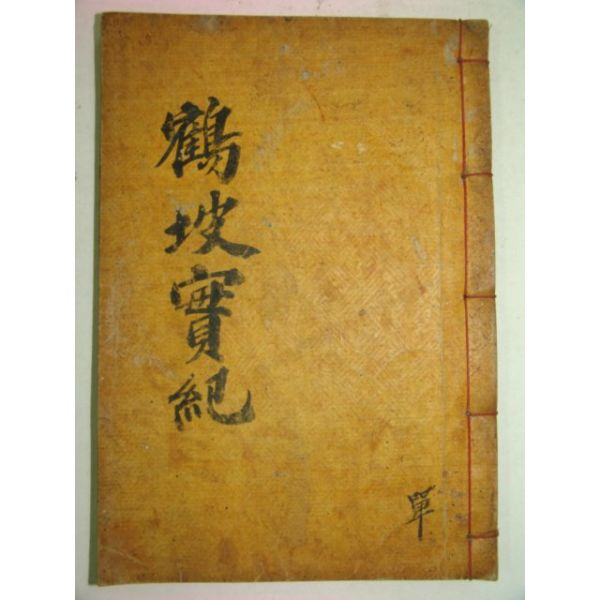 鶴坡實紀
單